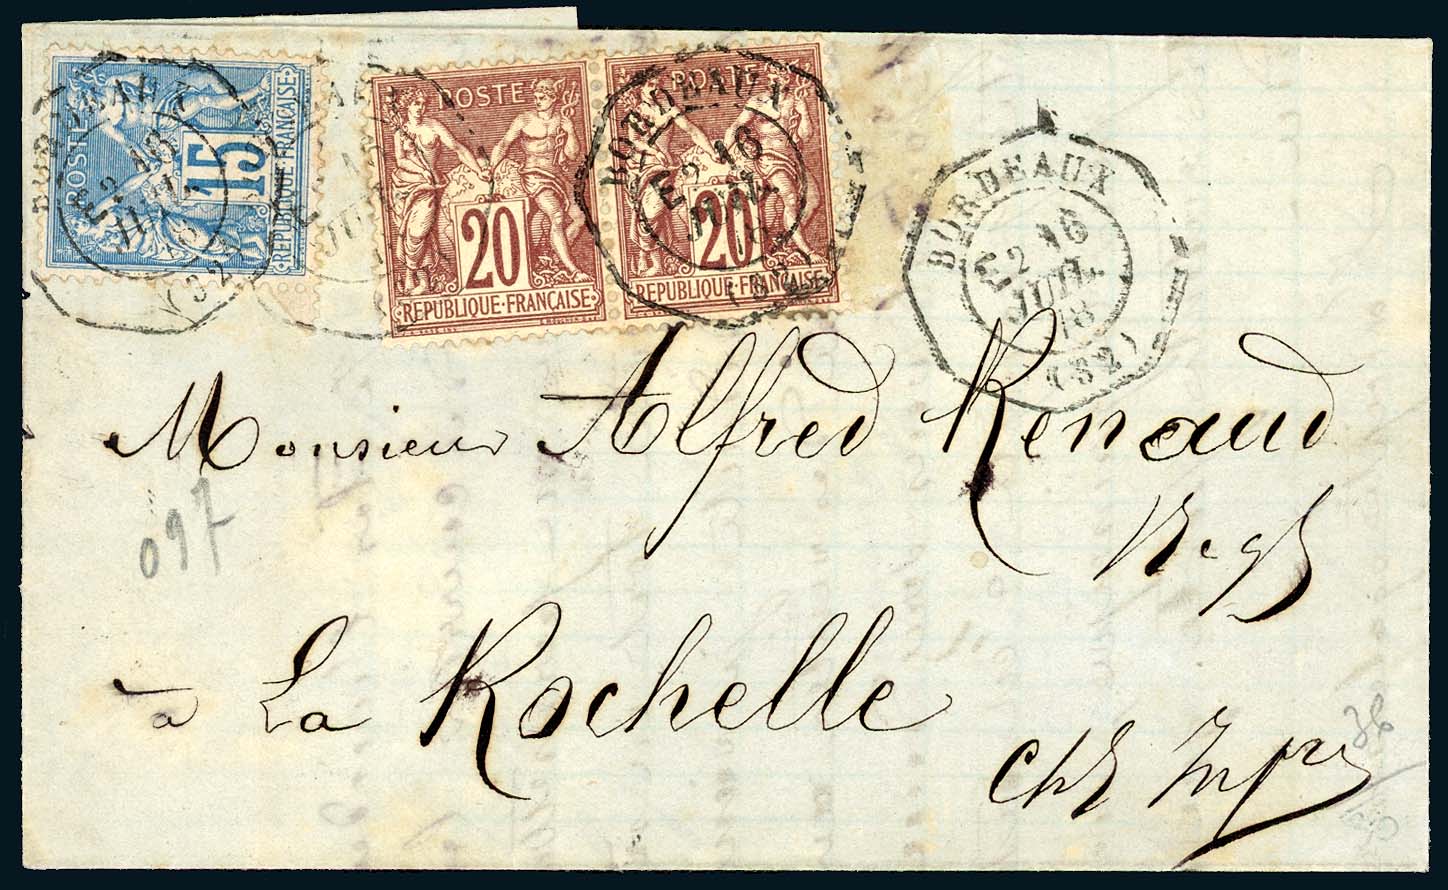 POSTE
15
15
RÉPUBLIQUE FRANÇAISE
POSTE
20
RÉPUBLIQUE·FRANÇAISE
POSTE
20
RÉPUBLIQUE·FRANÇAISE
BORDEAUX
E2 16
JUIL.
(32)
BORDEAUX
E2 16
JUIL.
78
(32)
Monsieur Alfred Renaud
Negt
097
à La Rochelle
Chte Infre